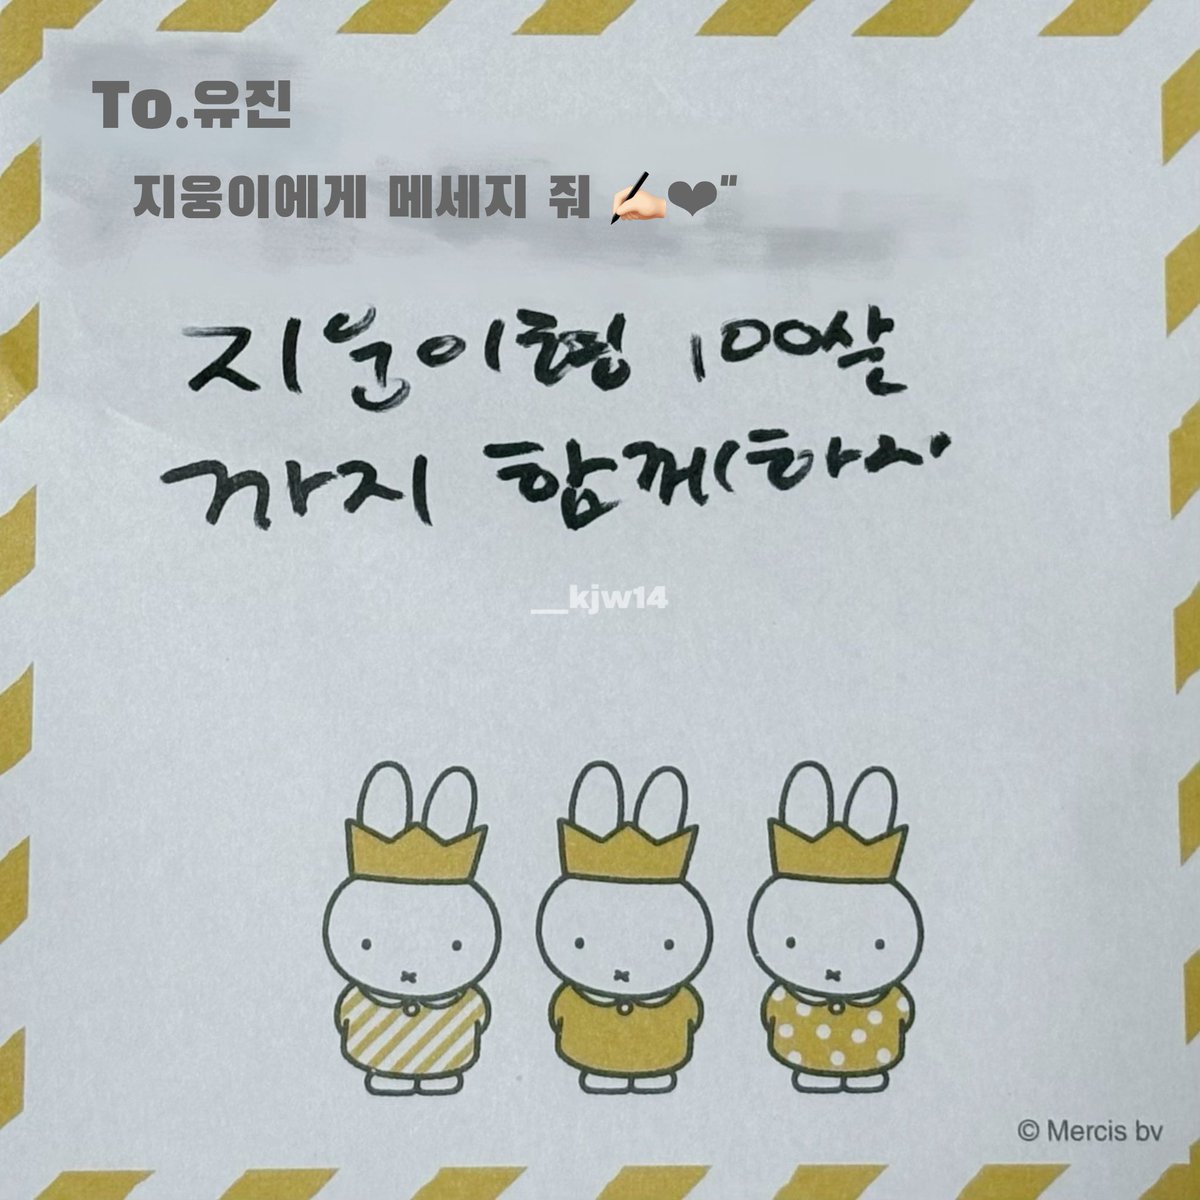 To.유진
지웅이에게 메세지 줘 ✍🏻❤"
지웅이형 100살
까지 함께하자
__kjw14
© Mercis bv